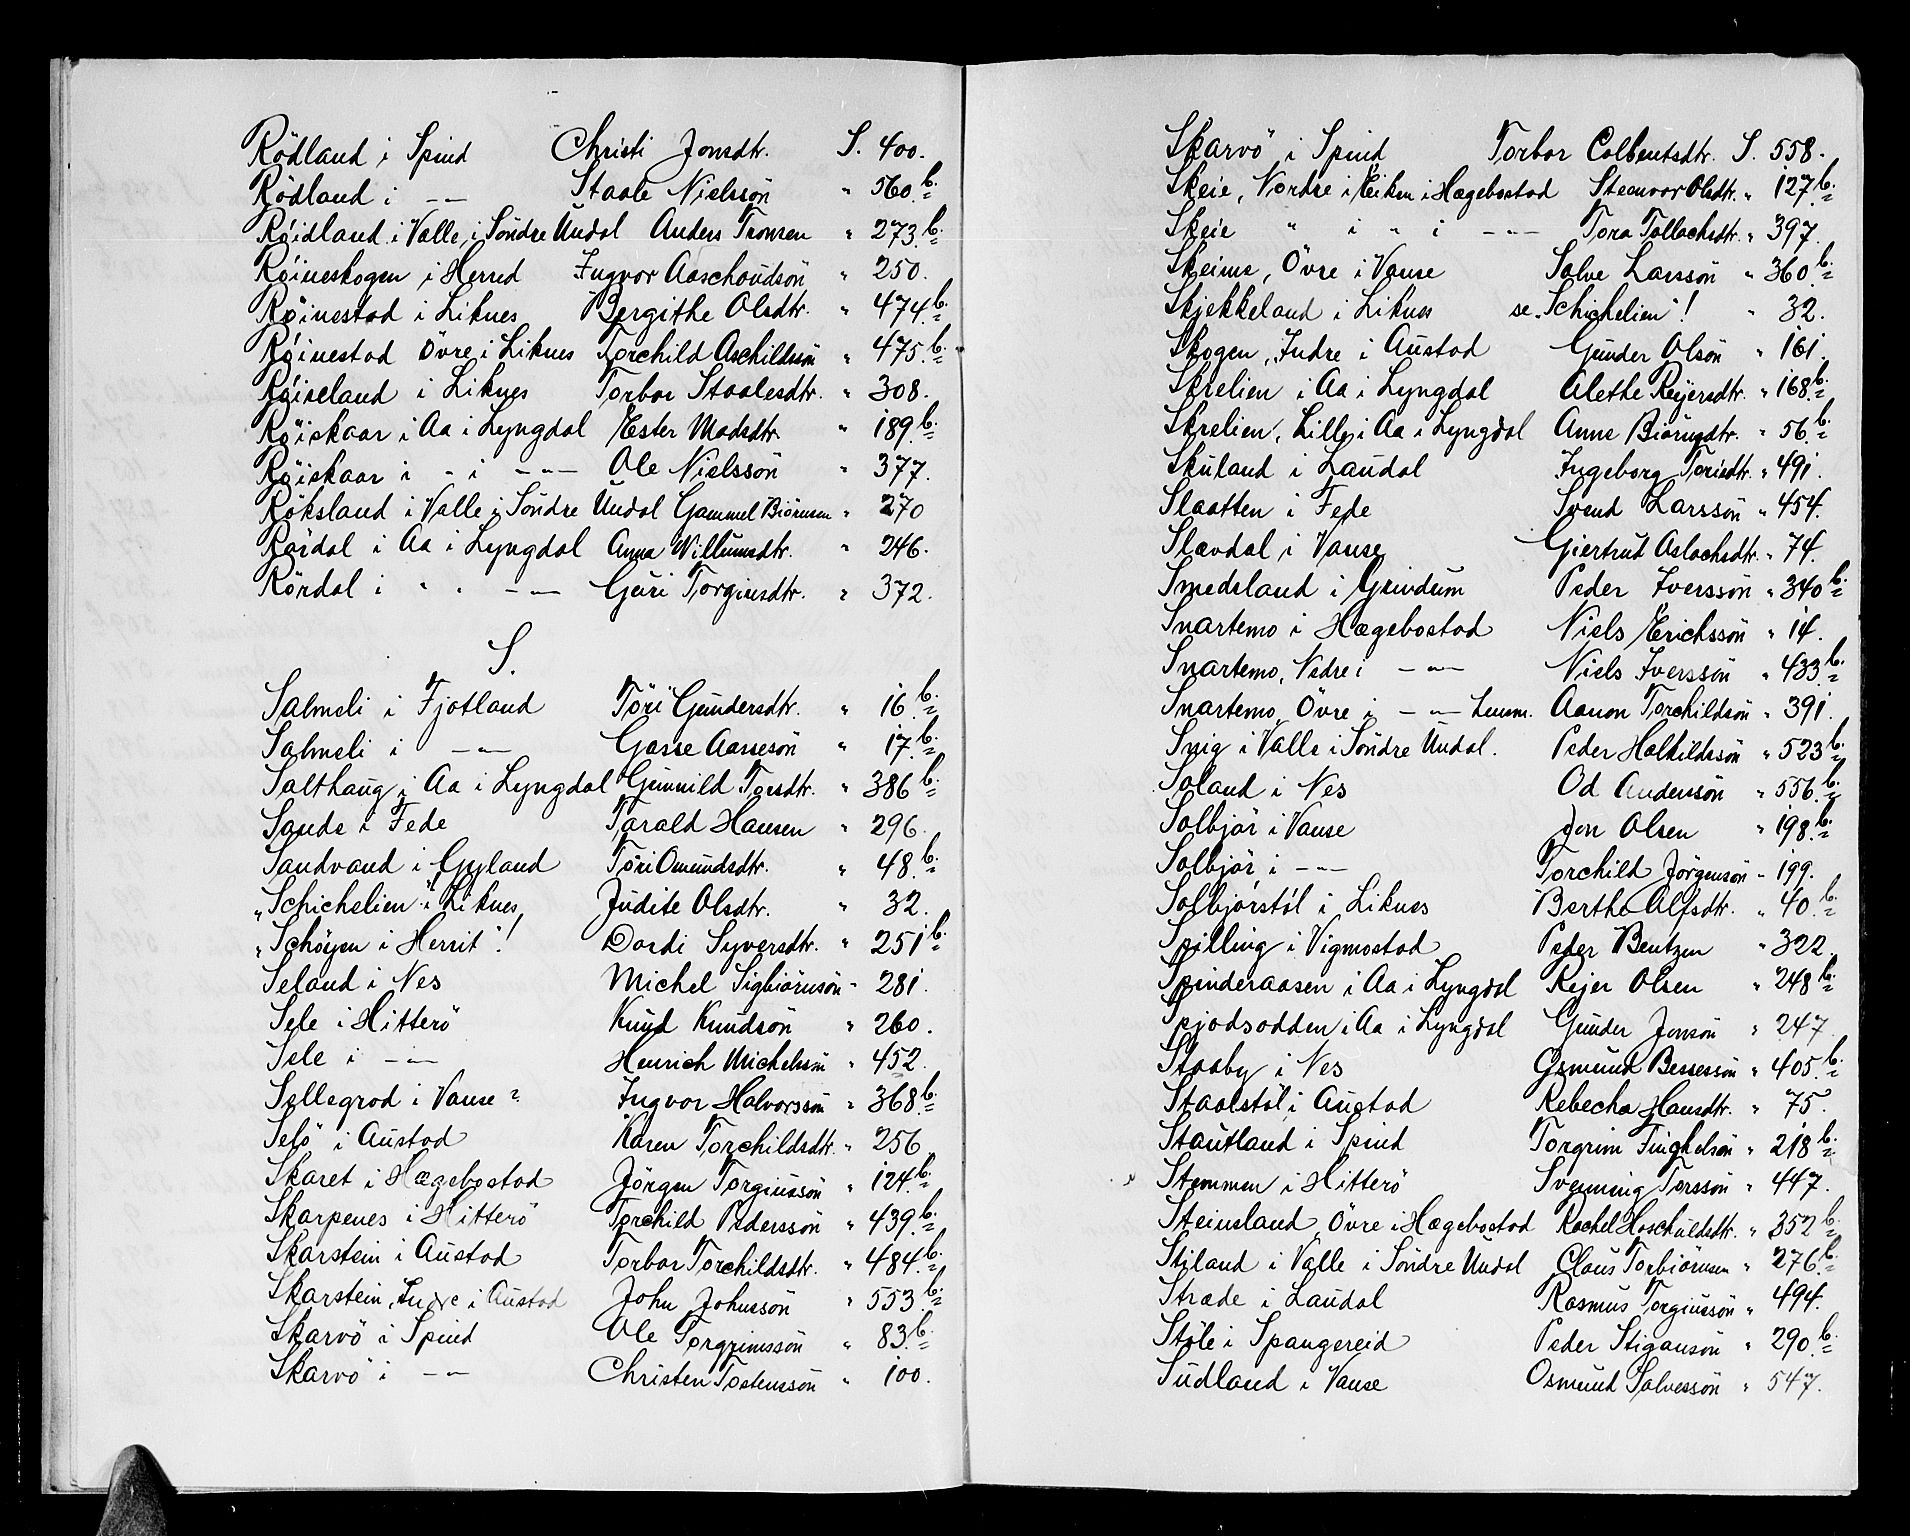 Rödland i Spind Christi Jonsdtr. S. 400.
Rödland i -"- Staale Nielssön " 560.b.
Röidland i Valle i Söndre Undal Anders Tronsen " 273.b.
Röineskogen i Herred Ingvor Aaschoudsön " 250.
Röinestad i Liknes Bergithe Olsdtr. " 474.b.
Röinestad Övre i Liknes Torchild Aschildsön " 475.b.
Röiseland i Liknes Torbor Staalesdtr. " 308.
Röiskaar i Aa i Lyngdal Ester Madsdtr. " 189.b.
Röiskaar i " i -"- Ole Nielssön " 377.
Röksland i Valle i Söndre Undal Gammel Biörnsen " 270
Rördal i Aa i Lyngdal Anna Villumsdtr. " 246.
Rördal i " " -"- Guri Torgiusdtr. " 372.
S.
Salmeli i Fjotland Töri Gundersdtr. " 16.b.
Salmeli i -"- Gasse Aassesön " 17.b.
Salthaug i Aa i Lyngdal Gunnild Torsdtr. " 386b.
Sande i Fede Tarald Hansen " 296.
Sandvand i Gyland Töri Omundsdtr. " 48.b.
"Schichelien" i Liknes, Judite Olsdtr. " 32.
"Schöyen i Herrit"! Dordi Syversdtr. " 251b.
Seland i Nes Michel Sigbiörnsön " 281.
Sele i Hitterö Knud Knudsön " 260.
Sele i -"- Henrich Michelsön " 452.
Sellegrod i Vanse? Ingvor Halvorssön " 368b.
Selö i Austad Karen Torchildsdtr. " 256.
Skaret i Hægebostad Jörgen Torgiussön " 124.b.
Skarpenes i Hitterö Torchild Pederssön " 439.b.
Skarstein i Austad Torbor Torchildsdtr. " 484.b.
Skarstein, Indre i Austad John Johnssön " 553.b.
Skarvö i Spind Ole Torgrimssön " 83.b.
Skarvö i -"- Christen Tostenssön " 100.
Skarvö i Spind Torbor Colbentsdtr. S. 558.
Skeie, Nordre i Eiken i Hægebostad Steenvor Olsdtr. " 127.b.
Skeie " i " i -"- Tora Tollachsdtr. " 397.
Skeime, Övre i Vanse Salve Larssön " 360.b.
Skjekkeland i Liknes se "Schichelien"! " 32.
Skogen, Indre i Austad Gunder Olsön " 161.
Skrelien i Aa i Lyngdal Alethe Reiersdtr. " 168.b.
Skrelien, Lille, i Aa i Lyngdal Anne Biörnsdtr. " 56.b.
Skuland i Laudal Ingeborg Torisdtr. " 491.
Slaatten i Fede Svend Larssön " 454.
Slevdal i Vanse Giertrud Aslachsdtr. " 74.
Smedsland i Grindum Peder Iverssön " 340b.
Snartemo i Hægebostad Niels Erichssön " 14.
Snartemo, Nedre i -"- Niels Iverssön " 433.b.
Snartemo, Övre i -"- Lensm. Aanon Torchildsön " 391.
Snig i Valle i Söndre Undal. Peder Halkildssön " 523b.
Soland i Nes Od Anderssön " 556.b.
Solbjör i Vanse Jon Olsen " 198.b.
Solbjör i -"- Torchild Jörgensön " 199.
Solbjörstöl i Liknes Berthe Alfsdtr. " 40.b.
Spilling i Vigmostad Peder Bentzen " 322.
Spinderaasen i Aa i Lyngdal Rejer Olsen " 248b.
Spjodsodden i Aa i Lyngdal Gunder Jonsön " 247.
Staaby i Nes Osmund Bessessön " 405.b.
Staalstöl i Austad Rebecha Hansdtr. " 75.
Stautland i Spind Torgrim Finchelsön " 218b.
Stemmen i Hitterö Svenning Torssön " 447.
Steinsland, Övre i Hægebostad Rachel Hoschuldsdtr. " 352b.
Stiland i Valle i Söndre Undal Claus Torbiörnsen " 276.b.
Stræde i Laudal Rasmus Torgiussön " 494.
Stöle i Spangereid Peder Stigansön " 290.b.
Sudland i Vanse Osmund Salvessön " 547.